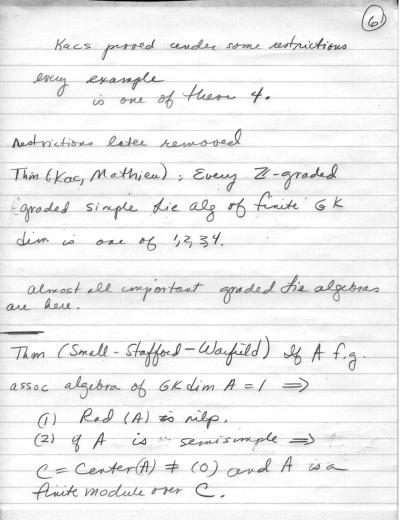 6
Kacs proved under some restrictions
every example
is one of these 4.
Restrictions later removed
Thm (Kac, Mathieu) : Every ℤ-graded
graded simple Lie alg of finite GK
dim is one of 1,2,3,4.
almost all important graded Lie algebras
are here.
Thm (Small-Stafford-Warfield) If A f.g.
assoc algebra of GKdim A = 1 ⟹
(1) Rad (A) is nilp.
(2) if A is semisimple ⟹
C = Center(A) ≠ (0) and A is a
finite module over C.